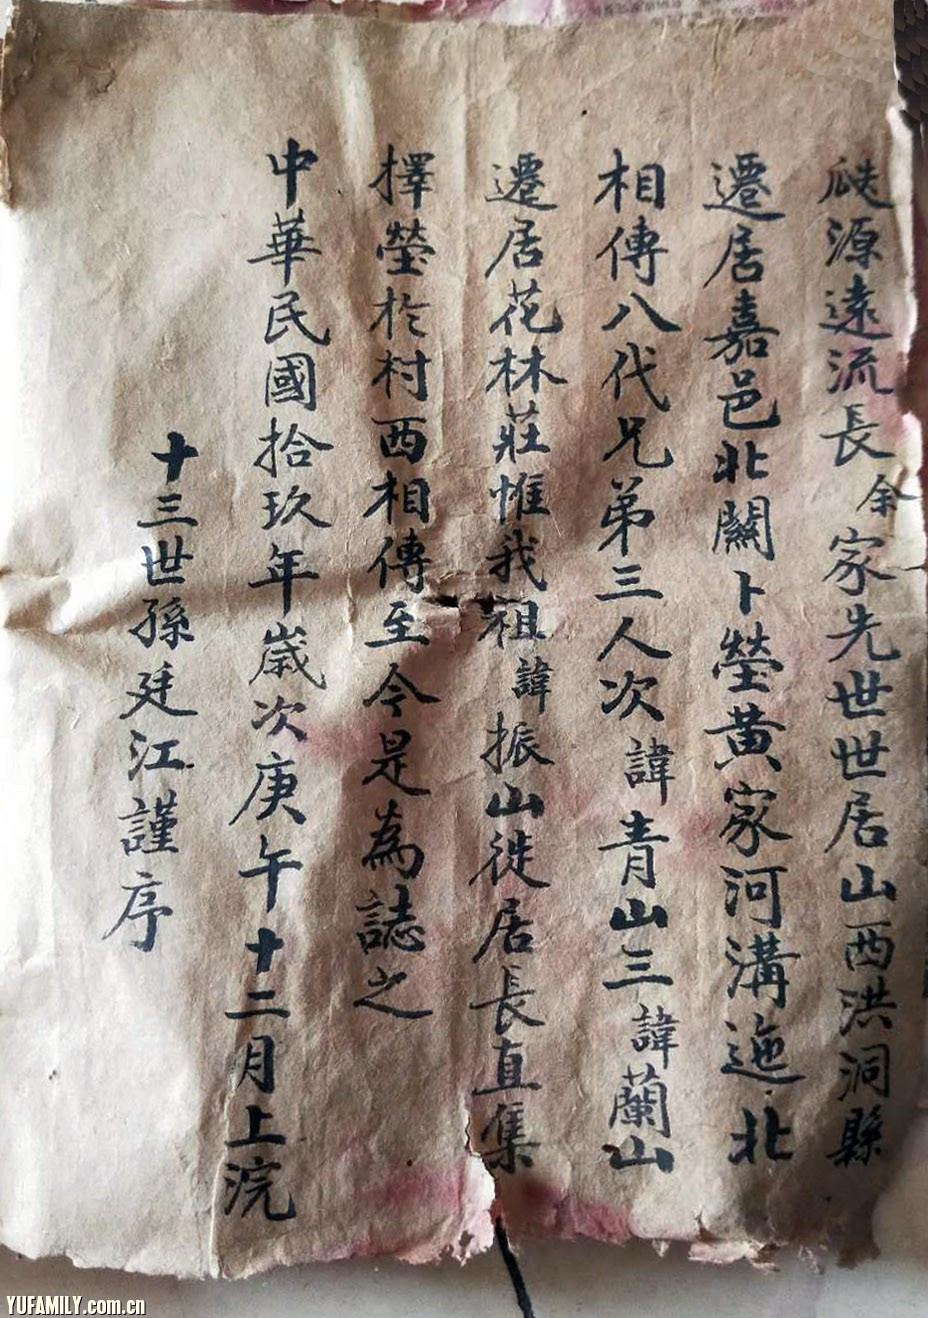 瓞源遠流長余家先世世居山西洪洞縣
遷居嘉邑北關卜塋黃家河溝迤北
相傳八代兄弟三人次諱青山三諱蘭山
遷居花林莊惟我祖諱振山徙居長直集
擇塋於村西相傳至今是為誌之
中華民國拾玖年歲次庚午十二月上浣
十三世孫廷江謹序
YUFAMILY.com.cn